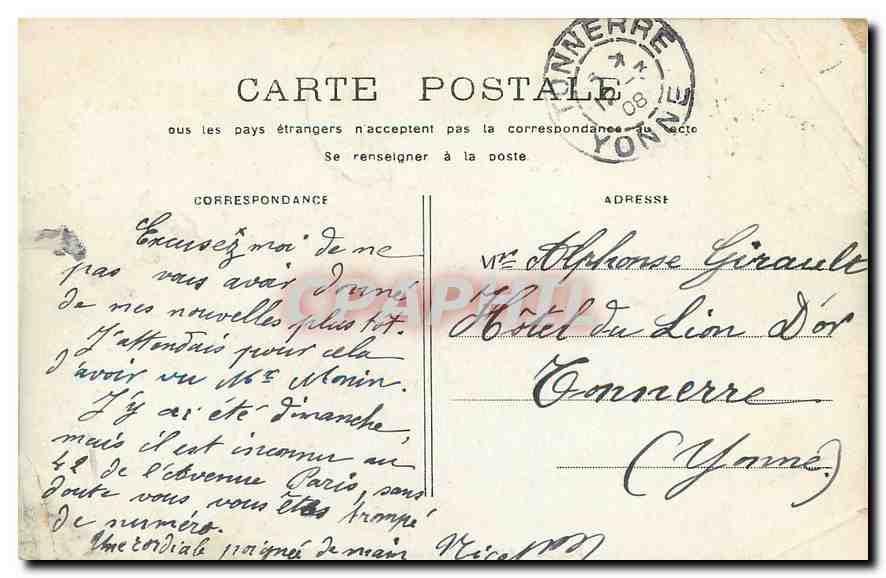 TONNERRE
* *
15 - 1
08
YONNE
CARTE POSTALE
ous les pays étrangers n'acceptent pas la correspondance au recto
Se renseigner à la poste
CORRESPONDANCE
ADRESSE
CPAPHIL
Excusez moi de ne
pas vous avoir donné
de mes nouvelles plus tot.
J'attendais pour cela
d'avoir vu Mr Monin.
J'y ai été dimanche,
mais il est inconnu au
42 de l'Avenue Paris, sans
doute vous vous êtes trompé
de numéro.
Une cordiale poignée de main
Mr Alphonse Girault
Hôtel du Lion D'or
Tonnerre
(Yonne)